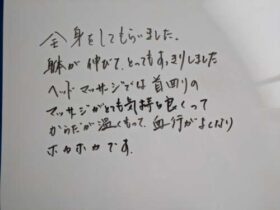 全身をしてもらいました。
躰が伸びて、とってもすっきりしました
ヘッドマッサージでは首回りの
マッサージがとても気持ち良くって
からだが温くもって、血行がよくなり
ホカホカです。